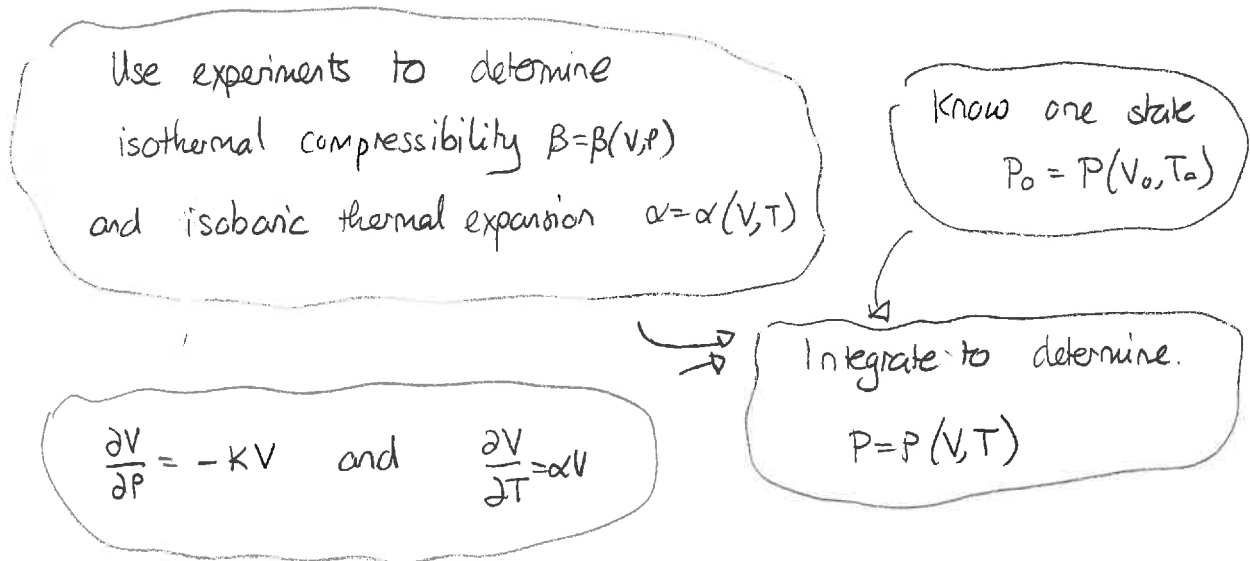 Use experiments to determine
isothermal compressibility β=β(V,P)
and isobaric thermal expansion α=α(V,T)
Know one state
P₀ = P(V₀,T₀)
Integrate to determine.
P=P(V,T)
∂V/∂P = -KV and ∂V/∂T = αV